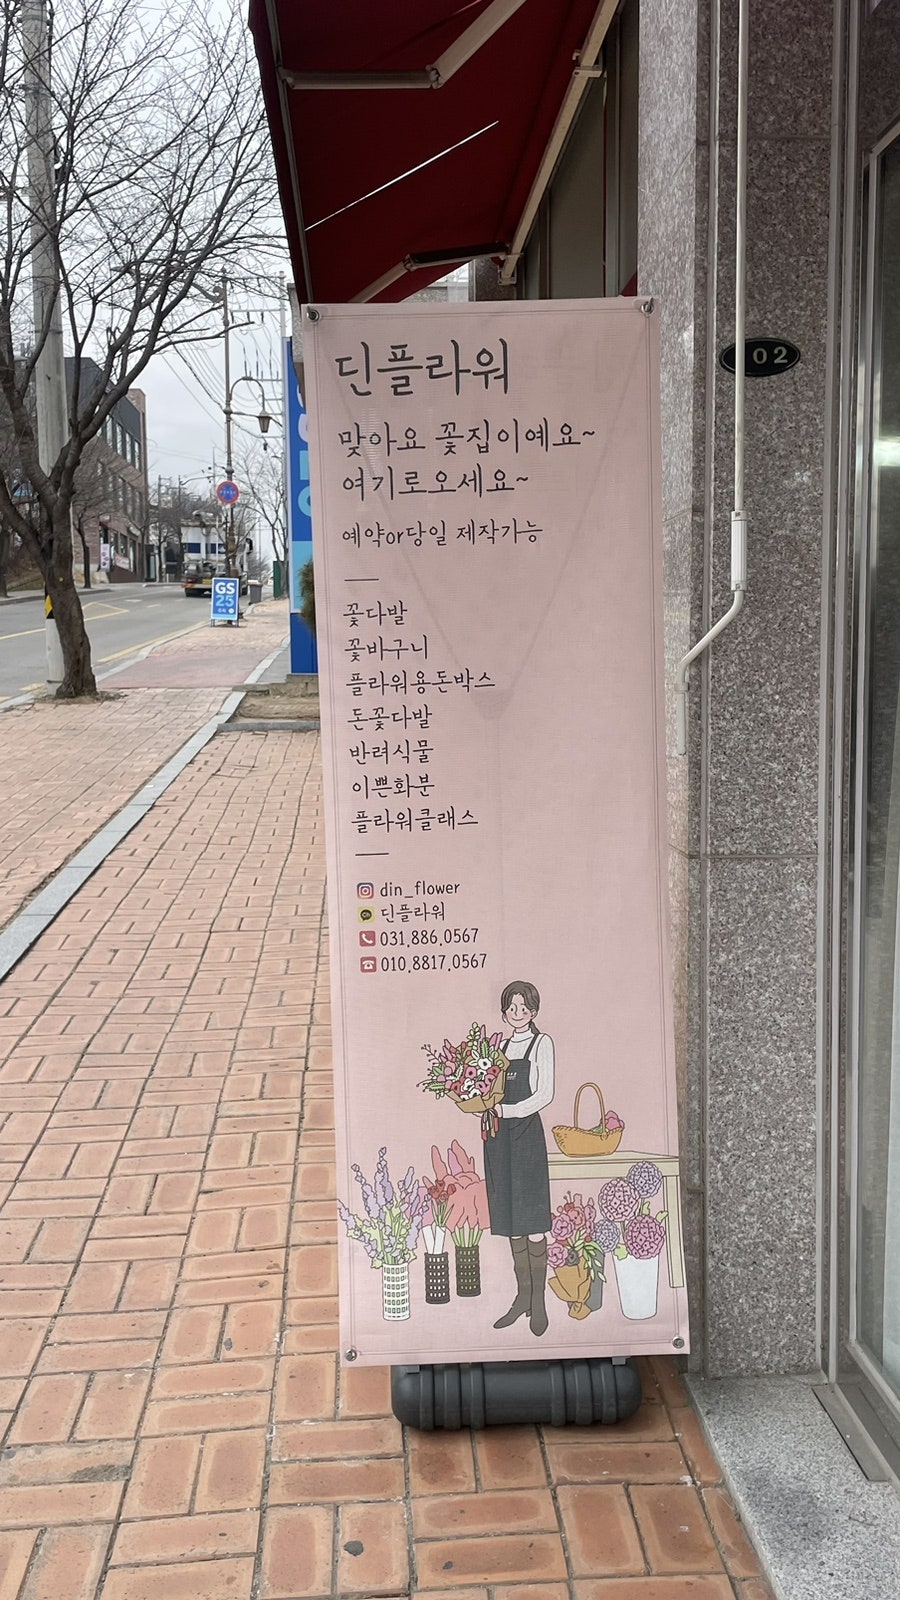 딘플라워
맞아요 꽃집이예요~
여기로오세요~
예약or당일 제작가능
꽃다발
꽃바구니
플라워용돈박스
돈꽃다발
반려식물
이쁜화분
플라워클래스
din_flower
딘플라워
031.886.0567
010.8817.0567
GS
25